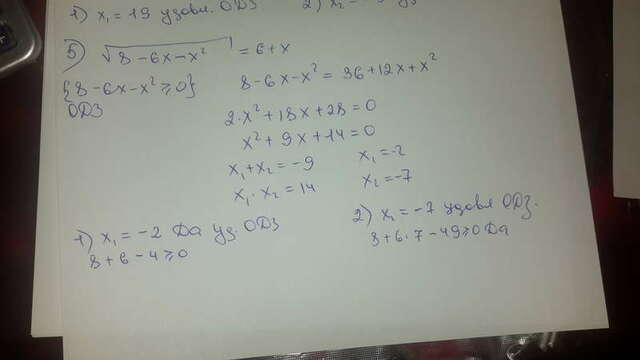 1) x₁ = 19 удовл. ОДЗ 2) x₂ =
5) √(8-6x-x²) = 6+x
{8-6x-x²≥0} 8-6x-x² = 36+12x+x²
ОДЗ
2·x²+18x+28=0
x²+9x+14=0
x₁+x₂=-9 x₁=-2
x₁·x₂=14 x₂=-7
1) x₁=-2 Да уд. ОДЗ 2) x₂=-7 удовл ОДЗ.
8+6-4≥0 8+6·7-49≥0 Да